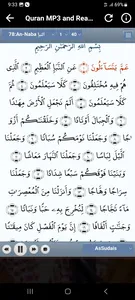 9:33
Quran MP3 and Rea...
78:An-Naba النبإ 1 40
بِسْمِ اللَّهِ الرَّحْمَٰنِ الرَّحِيمِ
عَمَّ يَتَسَاءَلُونَ عَنِ النَّبَإِ الْعَظِيمِ الَّذِي
هُمْ فِيهِ مُخْتَلِفُونَ كَلَّا سَيَعْلَمُونَ ثُمَّ
كَلَّا سَيَعْلَمُونَ أَلَمْ نَجْعَلِ الْأَرْضَ مِهَادًا
وَالْجِبَالَ أَوْتَادًا وَخَلَقْنَاكُمْ أَزْوَاجًا
وَجَعَلْنَا نَوْمَكُمْ سُبَاتًا وَجَعَلْنَا
اللَّيْلَ لِبَاسًا وَجَعَلْنَا النَّهَارَ مَعَاشًا
وَبَنَيْنَا فَوْقَكُمْ سَبْعًا شِدَادًا وَجَعَلْنَا
سِرَاجًا وَهَّاجًا وَأَنْزَلْنَا مِنَ الْمُعْصِرَاتِ
مَاءً ثَجَّاجًا لِنُخْرِجَ بِهِ حَبًّا وَنَبَاتًا
وَجَنَّاتٍ أَلْفَافًا إِنَّ يَوْمَ الْفَصْلِ كَانَ
AsSudais